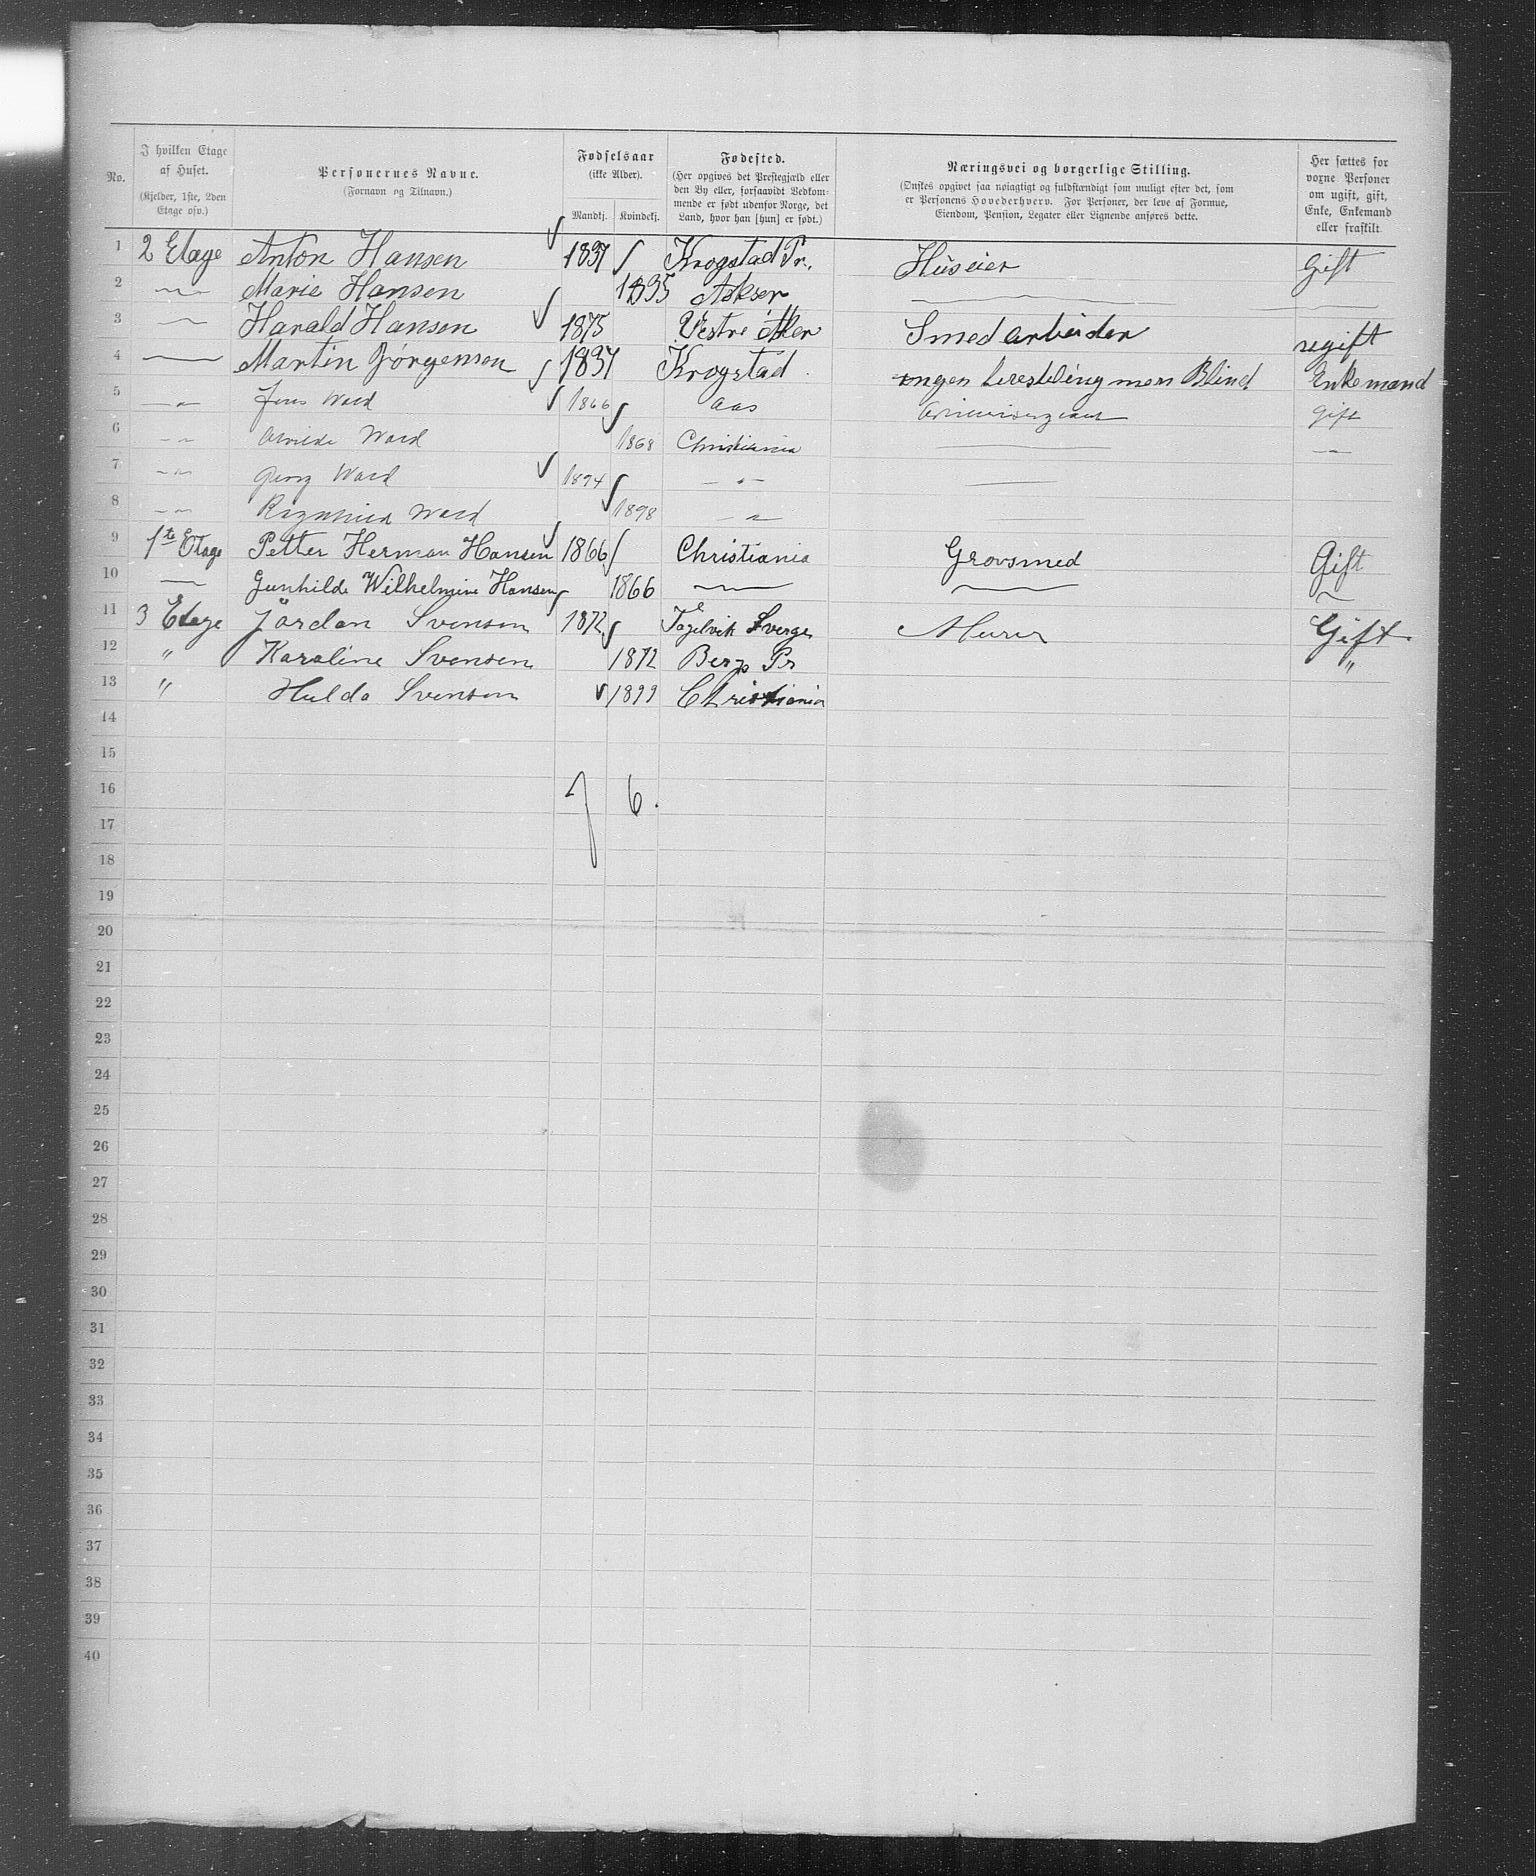 No. | I hvilken Etage af Huset. (Kjelder, 1ste, 2den Etage osv.) | Personernes Navne. (Fornavn og Tilnavn.) | Fødselsaar (ikke Alder). Mandkj. Kvindekj. | Fødested. (Her opgives det Prestegjæld eller den By eller, forsaavidt Vedkommende er født udenfor Norge, det Land, hvor han [hun] er født.) | Næringsvei og borgerlige Stilling. (Ønskes opgivet saa nøiagtigt og fuldstændigt som muligt efter det, som er Personens Hovederhverv. For Personer, der leve af Formue, Eiendom, Pension, Legater eller Lignende anføres dette. | Her sættes for voxne Personer om ugift, gift, Enke, Enkemand eller fraskilt.
1 2 Etage Anton Hansen 1837 Krogstad Pr. Huseier Gift
2 Marie Hansen 1835 Asker
3 Harald Hansen 1875 Vestre Aker Smedarbeider ugift
4 Martin Jørgensen 1837 Krogstad ingen Blind Enkemand
5 -"- Jens Ward 1866 Aas Gift
6 -"- Ward 1868 Christiania -"-
7 -"- Georg Ward 1894 -"-
8 -"- Ward 1898 -"-
9 1te Etage Petter Herman Hansen 1866 Christiania Grovsmed Gift
10 Gunhilde Wilhelmine Hansen 1866
11 3 Etage Jördan Svensen 1872 Sverge Murer Gift
12 " Karoline Svensen 1872 Berg Pr "
13 " Hulda Svensen 1899 Christiania
14
15
16 7 6.
17
18
19
20
21
22
23
24
25
26
27
28
29
30
31
32
33
34
35
36
37
38
39
40